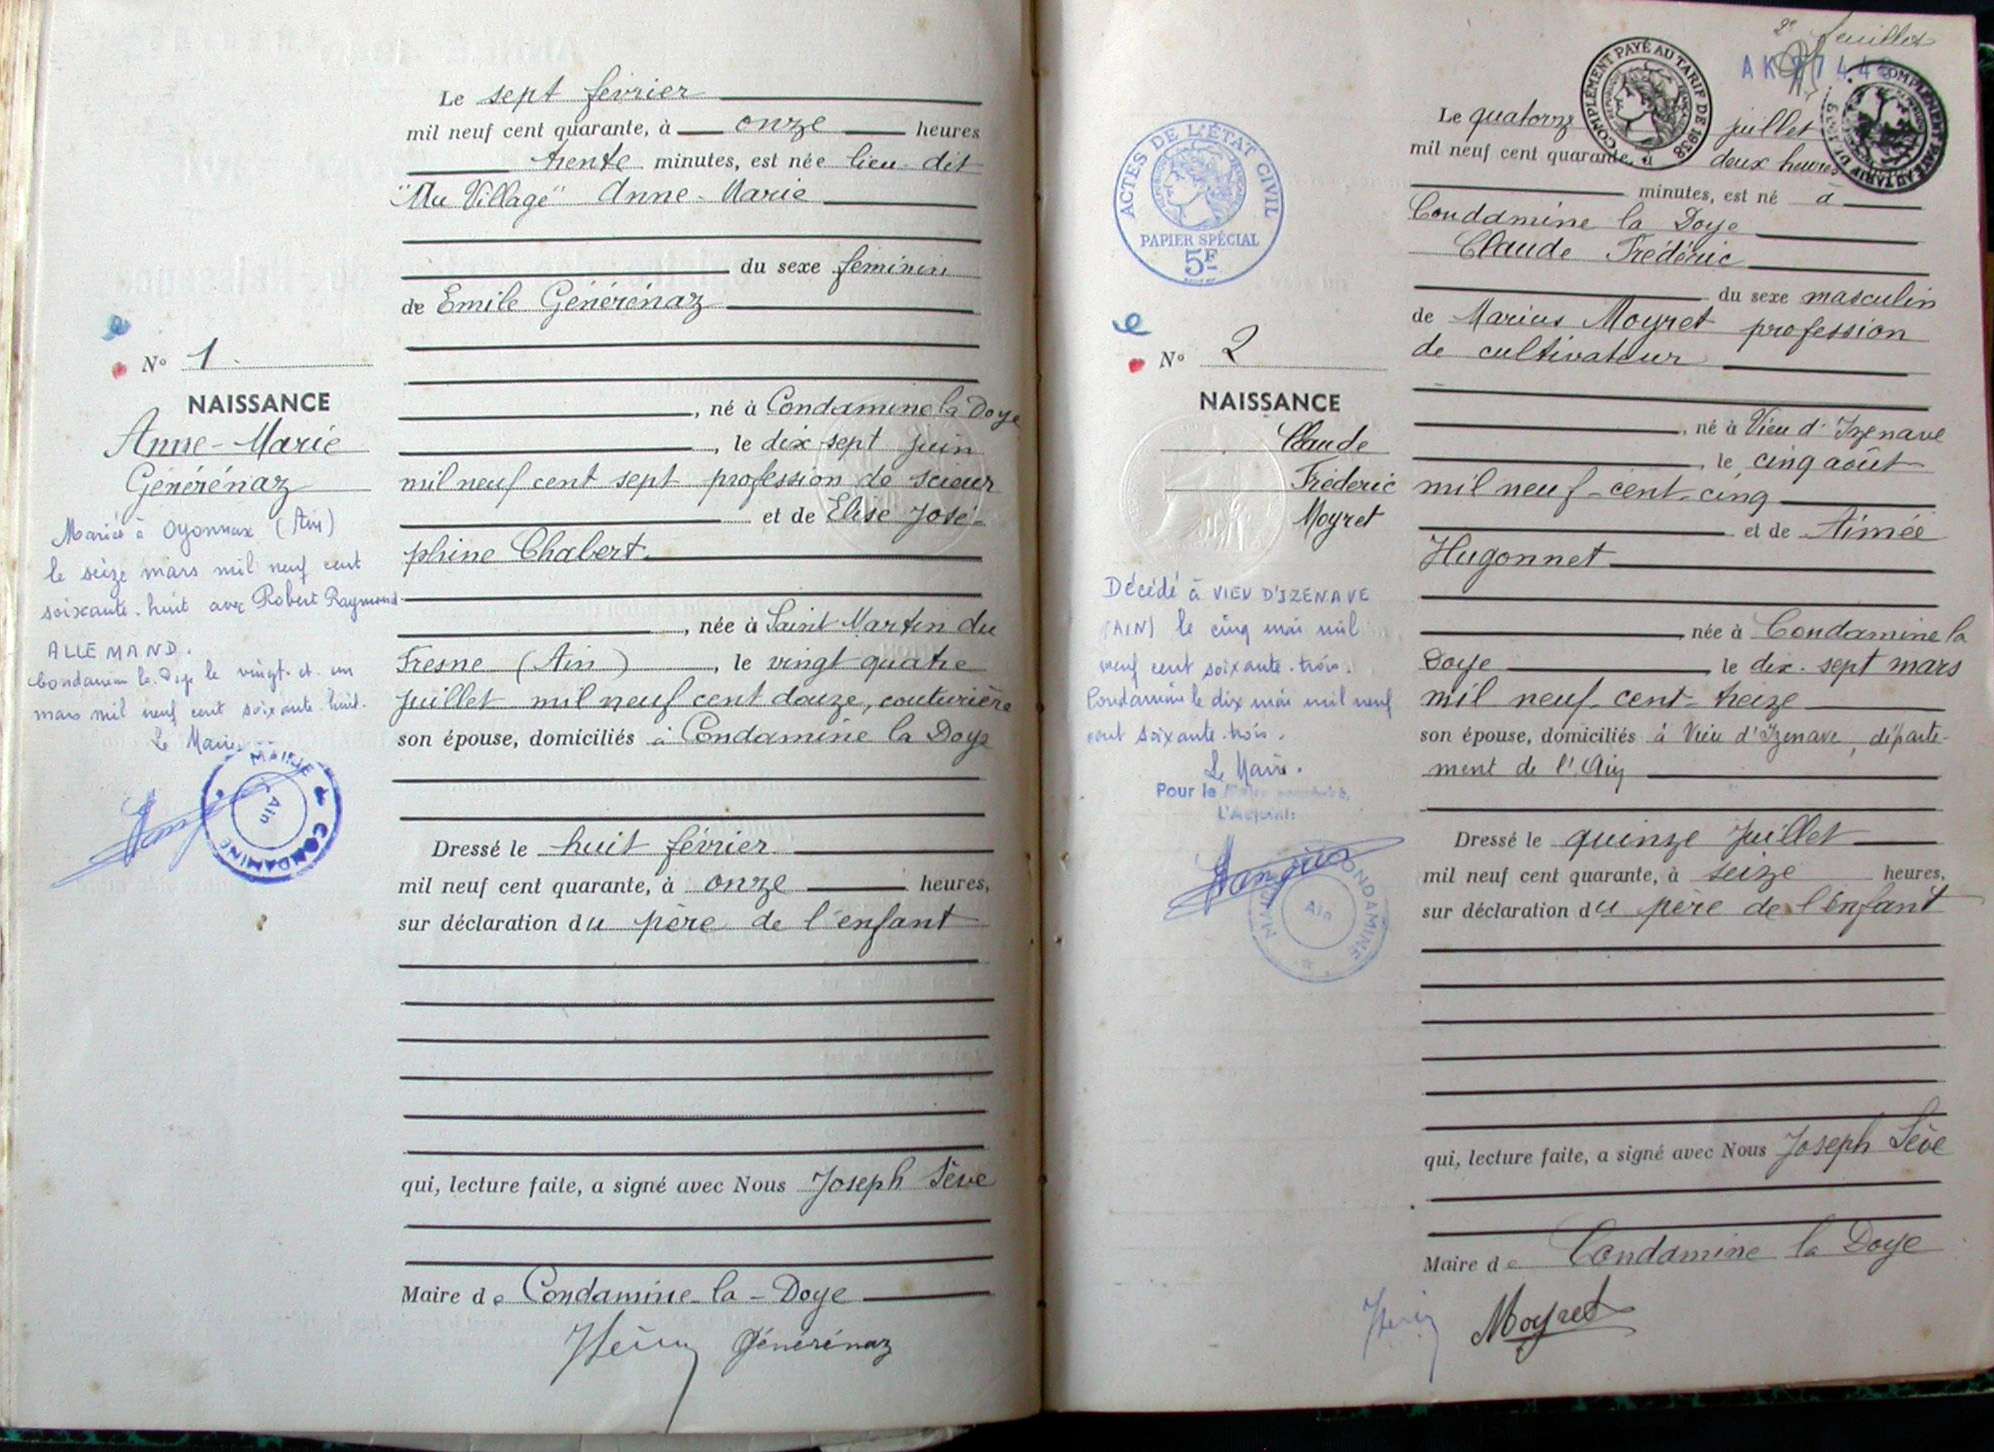 Le sept février
mil neuf cent quarante, à onze heures
trente minutes, est née lieu-dit
"Au Village" Anne-Marie
du sexe féminin
de Emile Générénaz
N° 1.
NAISSANCE
Anne-Marie
Générénaz
, né à Condamine la Doye
, le dix sept juin
mil neuf cent sept profession de scieur
et de Elise José-
phine Chabert
Mariée à Oyonnax (Ain)
le seize mars mil neuf cent
soixante-huit avec Robert Raymond
ALLEMAND.
Condamine la Doye le vingt-et-un
mars mil neuf cent soixante-huit.
Le Maire
MAIRIE
CONDAMINE
Ain
, née à Saint Martin du
Fresne (Ain), le vingt quatre
juillet mil neuf cent douze, couturière
son épouse, domiciliés à Condamine la Doye
Dressé le huit février
mil neuf cent quarante, à onze heures,
sur déclaration du père de l'enfant
qui, lecture faite, a signé avec Nous Joseph Sève
Maire de Condamine-la-Doye
Générénaz
2e feuillet
COMPLÉMENT PAYÉ AU TARIF DE 1938
COMPLÉMENT PAYÉ AU TARIF DE 1938
ACTES DE L'ÉTAT CIVIL
PAPIER SPÉCIAL
5F
Le quatorze juillet
mil neuf cent quarante, deux heures
minutes, est né à
Condamine la Doye
Claude Frédéric
du sexe masculin
de Marius Moyret profession
de cultivateur
N° 2
NAISSANCE
Claude
Frédéric
Moyret
, né à Vieu d'Izenave
, le cinq août
mil neuf-cent-cinq
et de Aimée
Hugonnet
Décédé à VIEU D'IZENAVE
(AIN) le cinq mai mil
neuf cent soixante-trois.
Condamine le dix mai mil neuf
cent soixante-trois.
Le Maire.
Pour le
L'Adjoint:
MAIRIE
CONDAMINE
Ain
née à Condamine la
Doye le dix-sept mars
mil neuf-cent-treize
son épouse, domiciliés à Vieu d'Izenave, départe-
ment de l'Ain
Dressé le quinze juillet
mil neuf cent quarante, à seize heures,
sur déclaration du père de l'enfant
qui, lecture faite, a signé avec Nous Joseph Sève
Maire de Condamine la Doye
Moyret